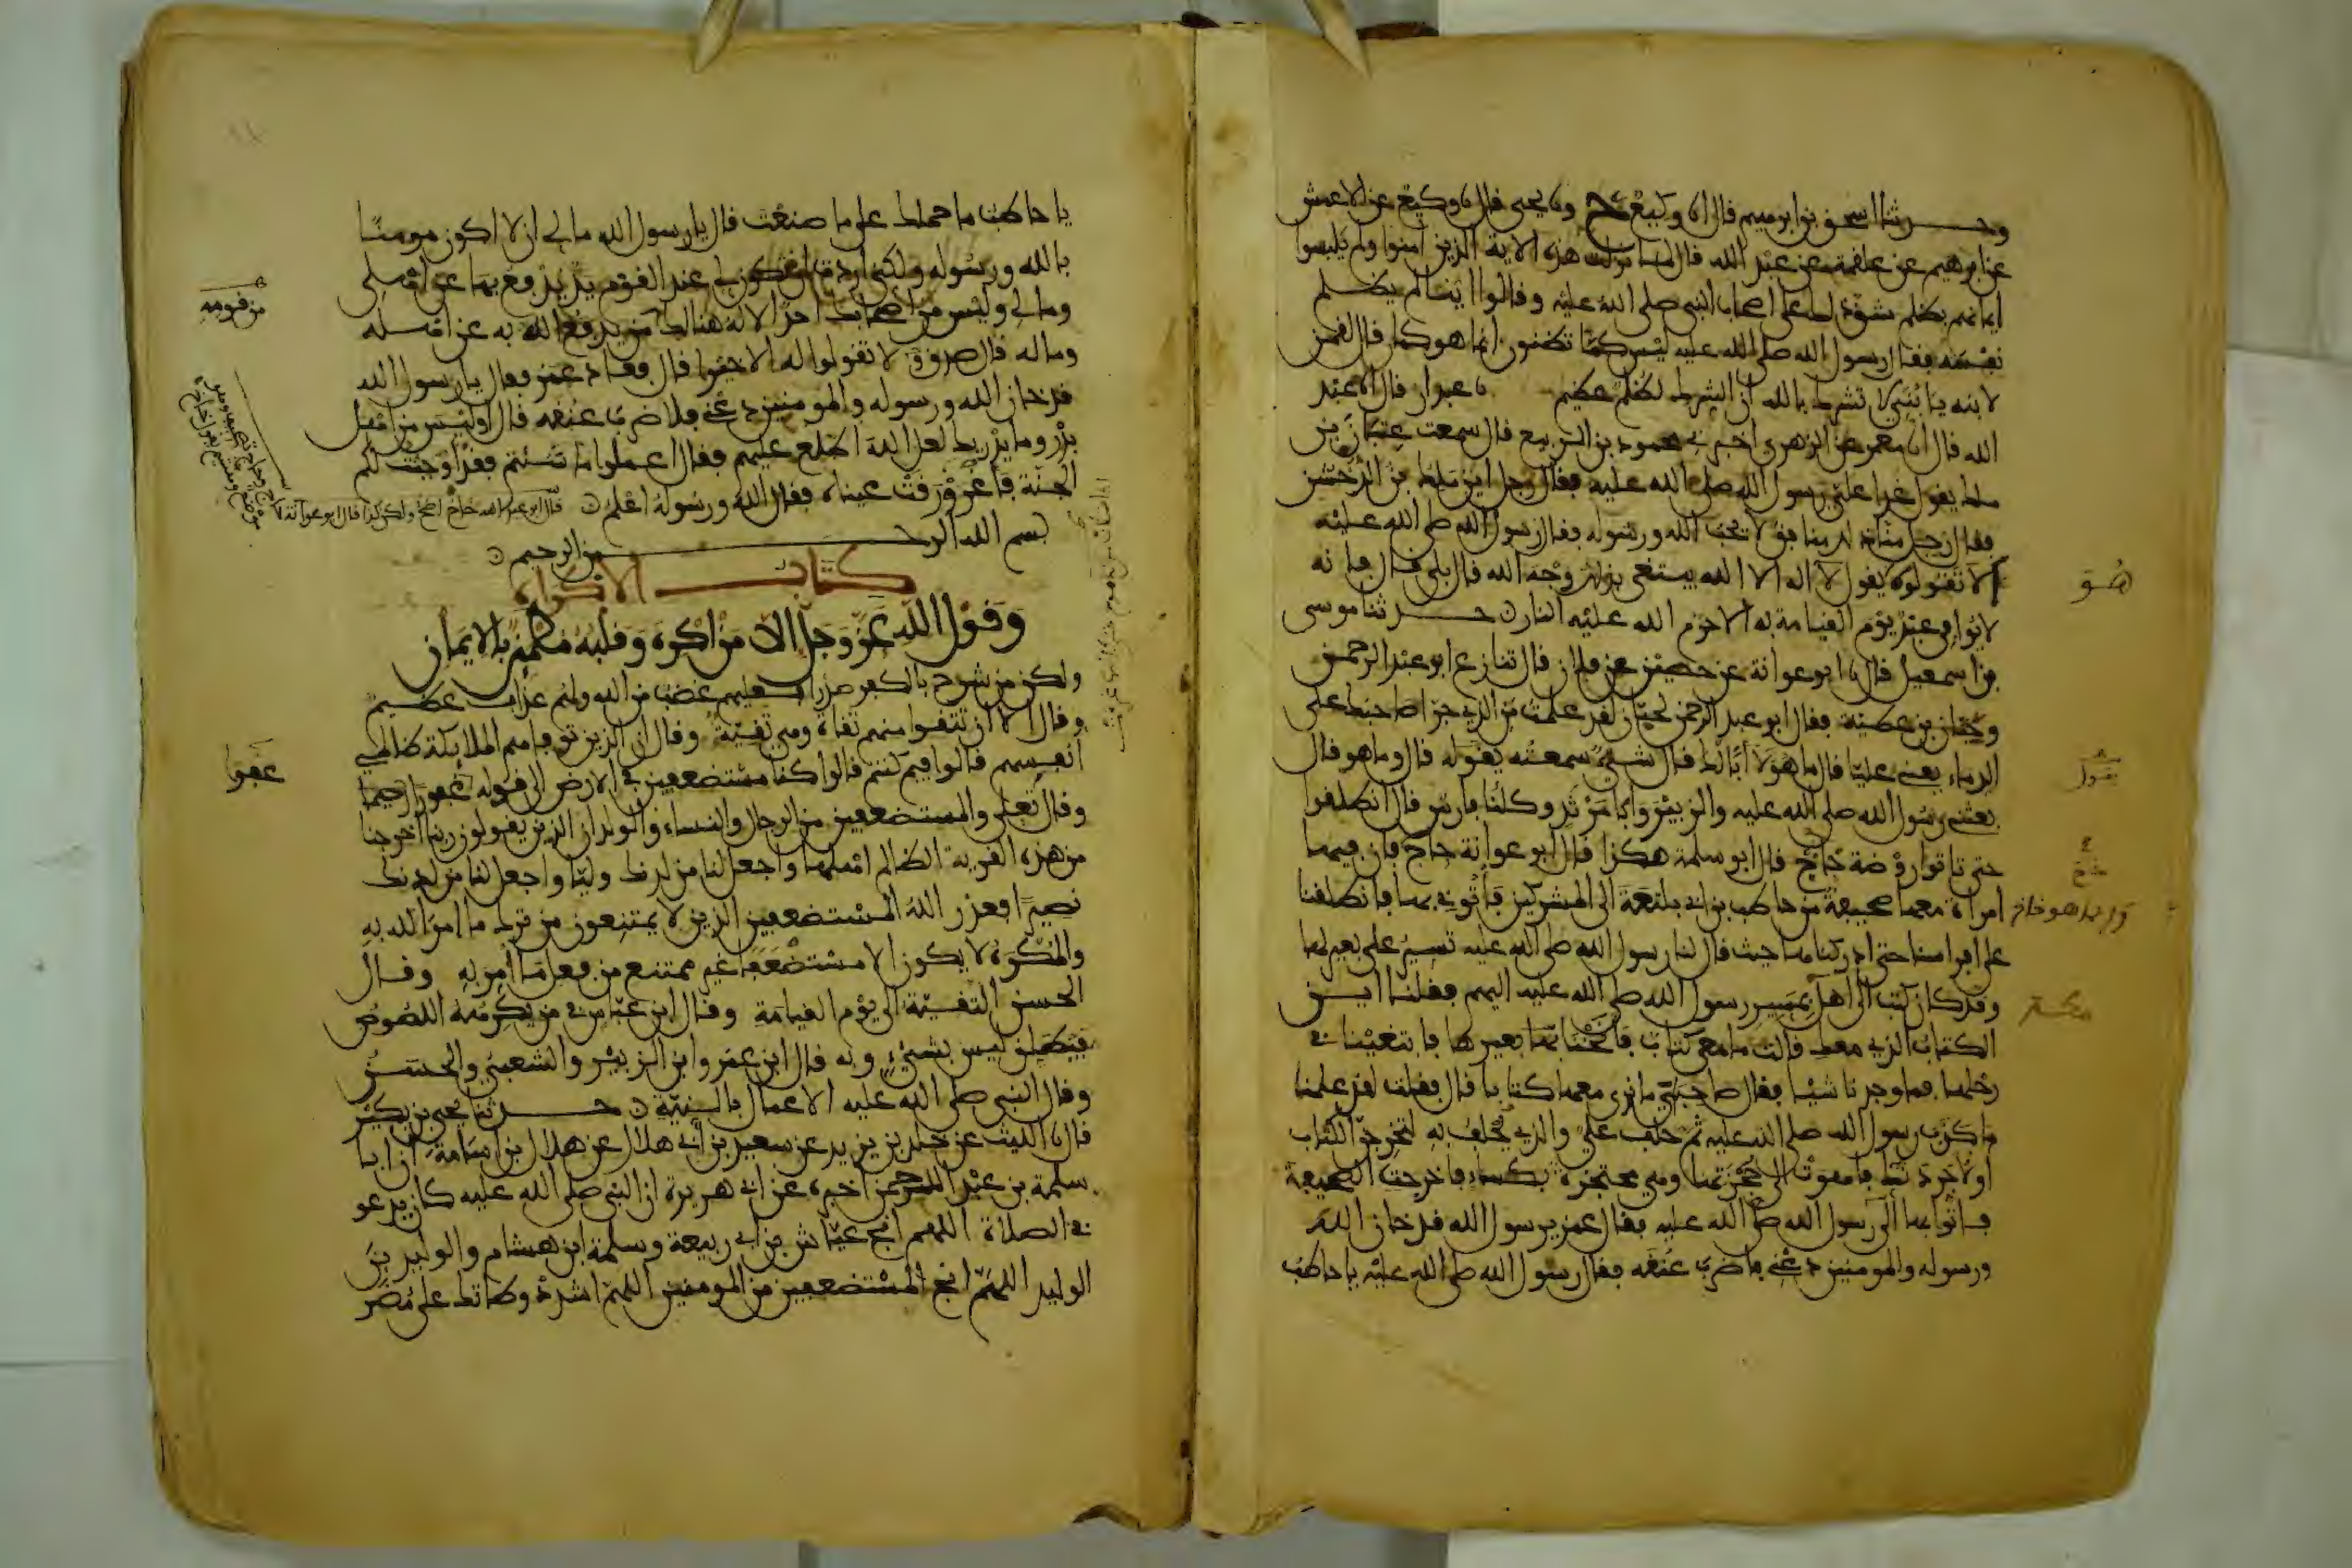 وحدثنا اسحق بن ابرهيم قال انا وكيع ح ونا يحيى قال نا وكيع عن الاعمش
عن ابرهيم عن علقمة عن عبد الله قال لما نزلت هذه الاية الذين امنوا ولم يلبسوا
ايمانهم بظلم شق ذلك على اصحاب النبي صلى الله عليه وقالوا اينا لم يظلم
نفسه فقال رسول الله صلى الله عليه ليس كما تظنون انما هو كما قال لقمن
لابنه يا بني لا تشرك بالله ان الشرك لظلم عظيم نا عبدان قال انا عبد
الله قال انا معمر عن الزهري اخبرني محمود بن الربيع قال سمعت عتبان بن
ملك يقول غدا علي رسول الله صلى الله عليه فقال رجل اين ملك بن الدخشن
فقال رجل منا ذلك منافق لا يحب الله ورسوله فقال رسول الله صلى الله عليه
الا تقولوه يقول لا اله الا الله يبتغي بذلك وجه الله قال بلى قال فانه
لا يوافي عبد يوم القيامة به الا حرم الله عليه النار حدثنا موسى
بن اسمعيل قال نا ابو عوانة عن حصين عن فلان قال تنازع ابو عبد الرحمن
وحبان بن عطية فقال ابو عبد الرحمن لحبان لقد علمت من الذي جرا صاحبك على
الدماء يعني عليا قال ما هو لا ابا لك قال شيء سمعته يقوله قال وما هو قال
بعثني رسول الله صلى الله عليه والزبير وابا مرثد وكلنا فارس قال انطلقوا
حتى تاتوا روضة خاخ قال ابو سلمة هكذا قال ابو عوانة حاج فان فيها
امراة معها صحيفة من حاطب بن ابي بلتعة الى المشركين فاتوني بها فانطلقنا
على افراسنا حتى ادركناها حيث قال لنا رسول الله صلى الله عليه تسير على بعير لها
وقد كان كتب الى اهل بمسير رسول الله صلى الله عليه اليهم فقلنا اين
الكتاب الذي معك قالت ما معي كتاب فانخنا بها بعيرها فابتغينا في
رحلها فما وجدنا شيئا فقال صاحبي ما نرى معها كتابا قال فقلت لقد علمنا
ما كذب رسول الله صلى الله عليه ثم حلف علي والذي يحلف به لتخرجن الكتاب
او لاجردنك فاهوت الى حجزتها وهي محتجزة بكساء فاخرجت الصحيفة
فاتوا بها الى رسول الله صلى الله عليه فقال عمر يرسول الله قد خان الله
ورسوله والمومنين دعني فاضرب عنقه فقال رسول الله صلى الله عليه يا حاطب
هو
يقول
يا حاطب ما حملك على ما صنعت قال يا رسول الله ما لي ان لا اكون مومنا
بالله ورسوله ولكني اردت ان تكون لي عند القوم يد يدفع بها عن اهلي
ومالي وليس من اصحابك احد الا له هنالك من يدفع الله به عن اهله
وماله قال صدق لا تقولوا له الا خيرا قال فعاد عمر فقال يا رسول الله
قد خان الله ورسوله والمومنين دعني فلاضرب عنقه قال اوليس من اهل
بدر وما يدريك لعل الله اطلع عليهم فقال اعملوا ما شئتم فقد اوجبت لكم
الجنة فاغرورقت عيناه فقال الله ورسوله اعلم قال ابو عبد الله خاخ اصح ولكن كذا قال ابو عوانة
بسم الله الرحمن الرحيم
كتاب الاكراه
وقول الله عز وجل الا من اكره وقلبه مطمئن بالايمان
ولكن من شرح بالكفر صدرا فعليهم غضب من الله ولهم عذاب عظيم
وقال الا ان تتقوا منهم تقاة وهي تقية وقال ان الذين توفاهم الملايكة ظالمي
انفسهم قالوا فيم كنتم قالوا كنا مستضعفين في الارض الى قوله غفورا رحيما
وقال تعلى والمستضعفين من الرجال والنساء والولدان الذين يقولون ربنا اخرجنا
من هذه القرية الظالم اهلها واجعل لنا من لدنك وليا واجعل لنا من لدنك
نصيرا فعذر الله المستضعفين الذين لا يمتنعون من ترك ما امر الله به
والمكره لا يكون الا مستضعفا غير ممتنع من فعل ما امر به وقال
الحسن التقية الى يوم القيامة وقال ابن عباس في من يكرهه اللصوص
فيطلق ليس بشيء وبه قال ابن عمر وابن الزبير والشعبي والحسن
وقال النبي صلى الله عليه الاعمال بالنية حدثنا يحيى بن بكير
قال نا الليث عن خلد بن يزيد عن سعيد بن ابي هلال عن هلال بن اسامة ان ابا
سلمة بن عبد الرحمن اخبره عن ابي هريرة ان النبي صلى الله عليه كان يدعو
في الصلاة اللهم انج عياش بن ابي ربيعة وسلمة ابن هشام والوليد بن
الوليد اللهم انج المستضعفين من المومنين اللهم اشدد وطاتك على مضر
من قومه
عفوا